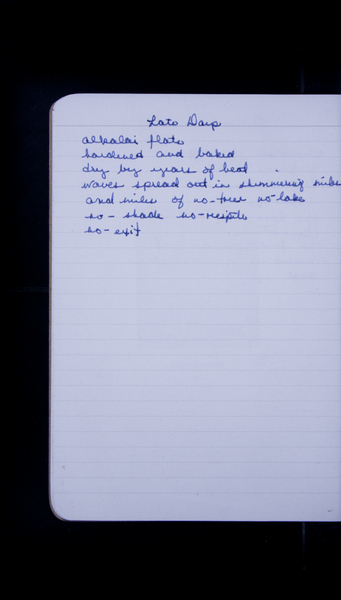 Late Days
alkalai flats
hardened and baked
dry by years of heat
waves spread out in shimmering miles
and miles of no-trees no-lake
no-shade no-respite
no-exit